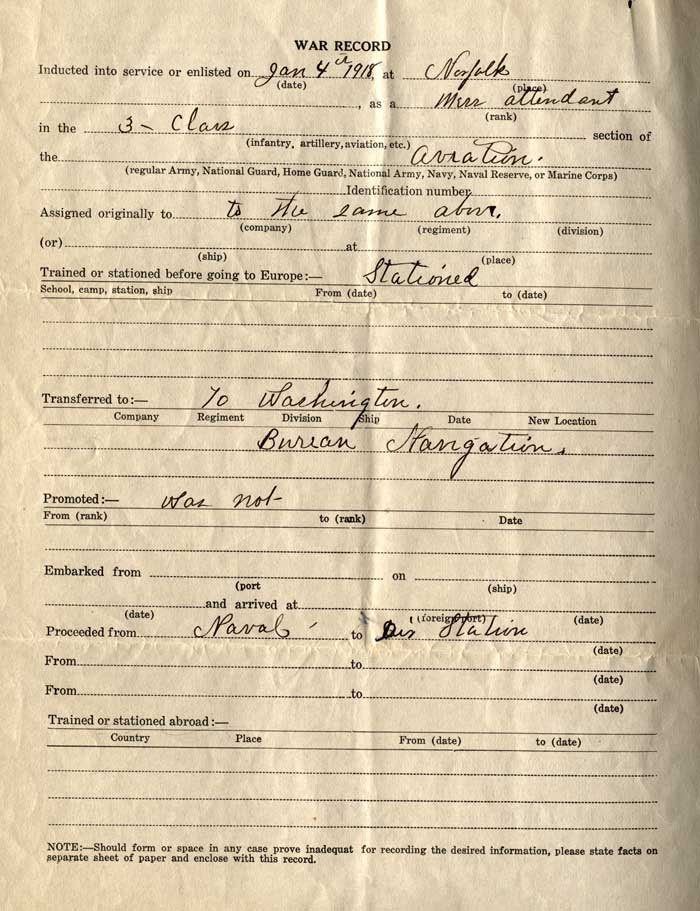 WAR RECORD
Inducted into service or enlisted on Jan 4th 1918, at Norfolk
(date) (place)
, as a Mess attendant
(rank)
in the 3 - Class section of
(infantry, artillery, aviation, etc.)
the Aviation.
(regular Army, National Guard, Home Guard, National Army, Navy, Naval Reserve, or Marine Corps)
Identification number
Assigned originally to to the same above.
(company) (regiment) (division)
(or) at
(ship) (place)
Trained or stationed before going to Europe:— Stationed
School, camp, station, ship From (date) to (date)
Transferred to:— To Washington.
Company Regiment Division Ship Date New Location
Bureau Navigation.
Promoted:— was not
From (rank) to (rank) Date
Embarked from on
(port (ship)
and arrived at
(date) (foreign port) (date)
Proceeded from Naval to Station
(date)
From to
(date)
From to
(date)
Trained or stationed abroad:—
Country Place From (date) to (date)
NOTE:—Should form or space in any case prove inadequat for recording the desired information, please state facts on
separate sheet of paper and enclose with this record.